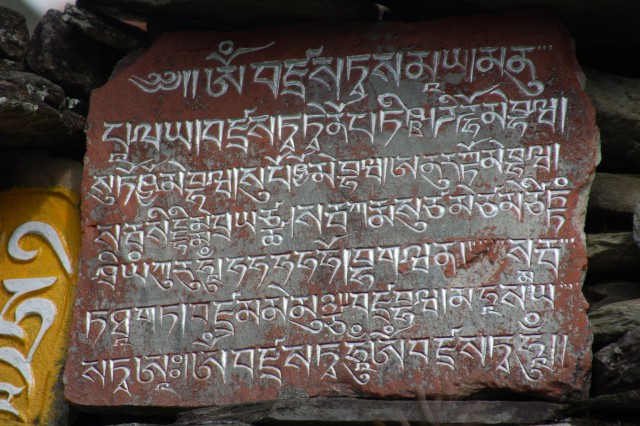 ༄༅།།ཨོཾ་བཛྲསཏྭསམཱཡམནུ་
པཱལཡ།བཛྲསཏྭཏྭེནོཔཏིཥྛ།དྲྀཌྷོམེབྷཝ།
སུཏོཥྱོམེབྷཝ།སུཔོཥྱོམེབྷཝ།ཨནུརཀྟོམེབྷཝ།
སརྦསིདྡྷིམྨེཔྲཡཙྪ།སརྦཀརྨསུཙམེཙིཏྟཾ
ཤྲེཡཿཀུརུཧཱུྃ།ཧཧཧཧཧོ།བྷགཝན།སརྦ
ཏཐཱགཏ།བཛྲམམེམུཉྩ།བཛྲབྷཝམཧཱསམཡ
སཏྭཨཱཿ།ཨོཾབཛྲསཏྭཧཱུྃ།ཨོཾབཛྲསཏྭཧཱུྃ།།